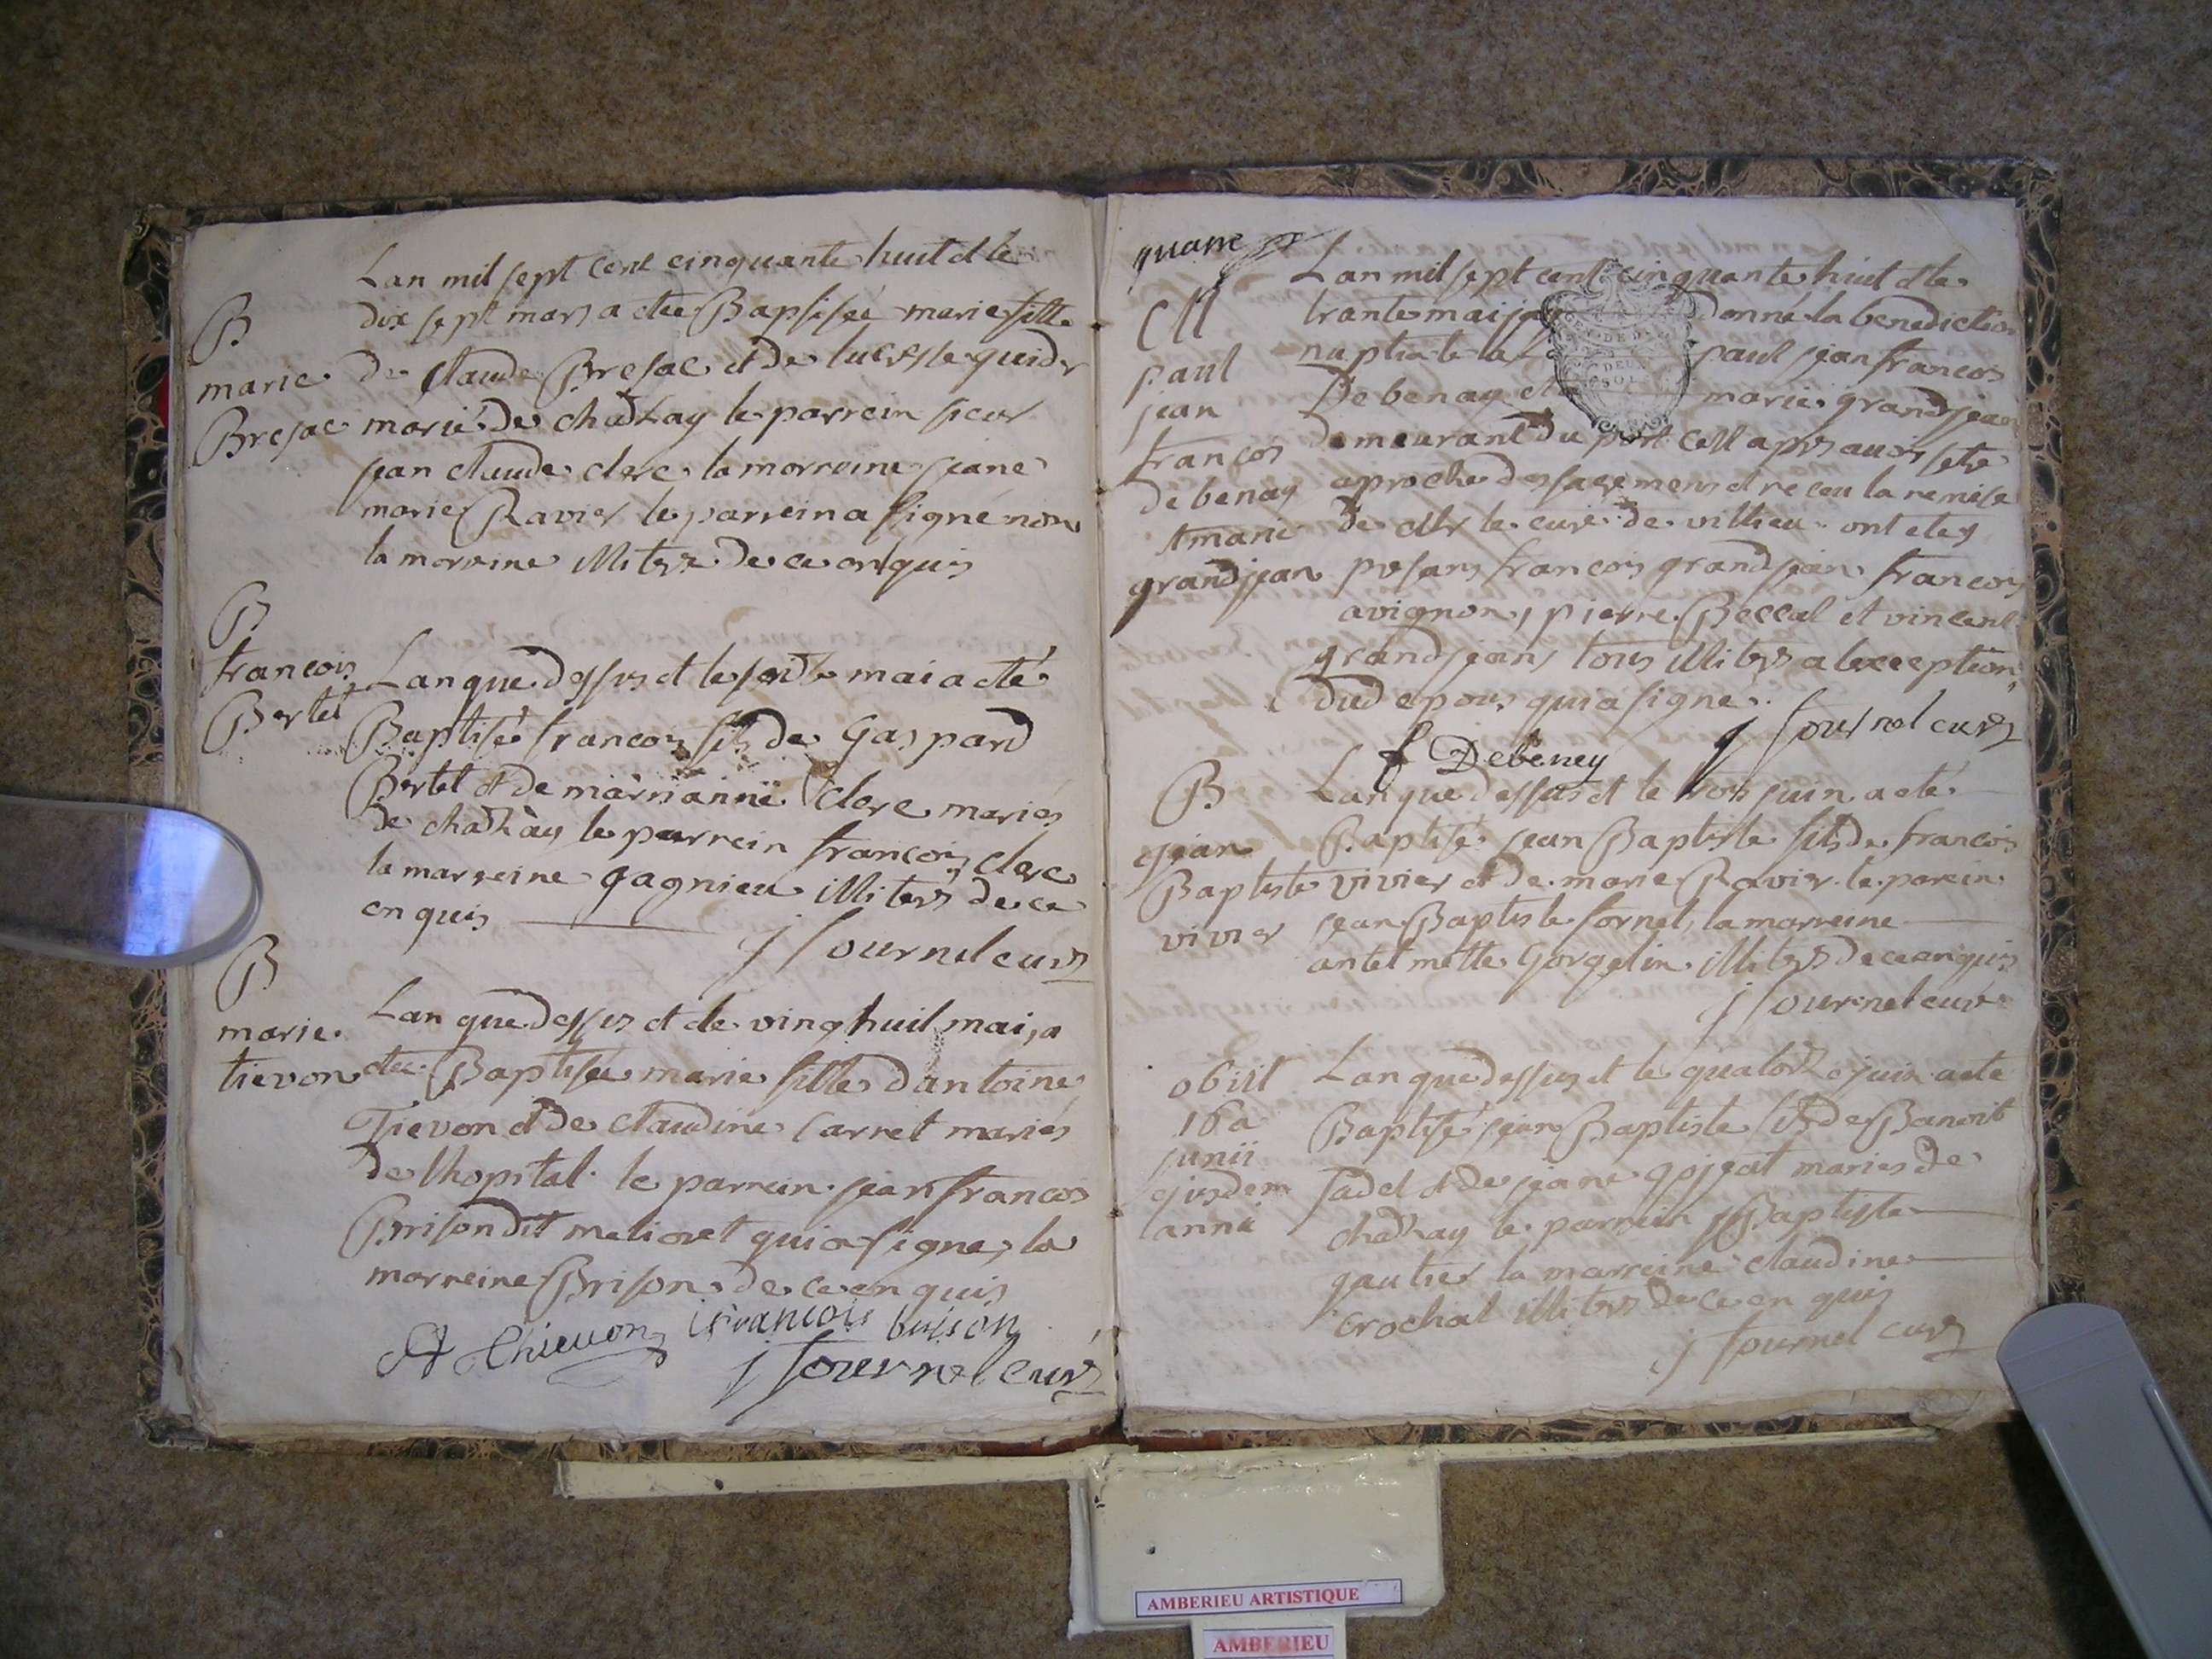 Lan mil sept cent cinquante huit et le
B
dix sept mars a etee Baptisée marie fille
marie
de claude Bresac et de
Bresac
mariés de chathay le parrein sieur
jean claude clerc la marreine jeane
marie Ravier le parrein a signé non
la marreine illiterz de ce enquis
B
francois
Bertet
Lan que dessus et le mai a eté
Baptisé francois fils de Gaspard
Bertet et de marrianne clerc mariés
de chathay le parrein francois clerc
la marreine gagnieu illiters de ce
enquis
j fournel curé
B
marie
tievon
Lan que dessus et le vinghuit mai, a
etee Baptisée marie fille dantoine
Tievon et de claudine Carnet mariés
de lhopital le parrein jean francois
Brison dit melioret qui a signe, la
marreine Brison de ce enquis
A Thieuon francois brison
j fournel curé
quatre
M
paul
jean
francois
debenay
et marie
grandjean
Lan mil sept cent cinquante huit et le
trante mai jai donné la benediction
nuptiale a paul jean francois
Debenay et marie grandjean
demeurant du port apres avoir ete
aproche des sacremens et receu la remise
de Mr le curé de villieu ont etes
presans francois grandjean francois
avignon, pierre Beccat et vincent
grandjean, tous illiters a lexception
dud epoux qui a signe
f Debeney
j fournel curé
B
jean
Baptiste
vivier
Lan que dessus et le trois juin a eté
Baptisé jean Baptiste fils de francois
vivier et de marie Ravier le parein
jean Baptiste fornel, la marreine
antelmette Gorgelin illiters de ce enquis
j fournel curé
obiit
16a
junii
ejusdem
anni
Lan que dessus et le quatorze juin a ete
Baptisé jean Baptiste fils de Benoit
sadet et de jeane gojeat mariés de
chathay le parrein j Baptiste
gautier la marreine claudine
crochat illiters de ce en quis
j fournel curé
AMBERIEU ARTISTIQUE
AMBERIEU